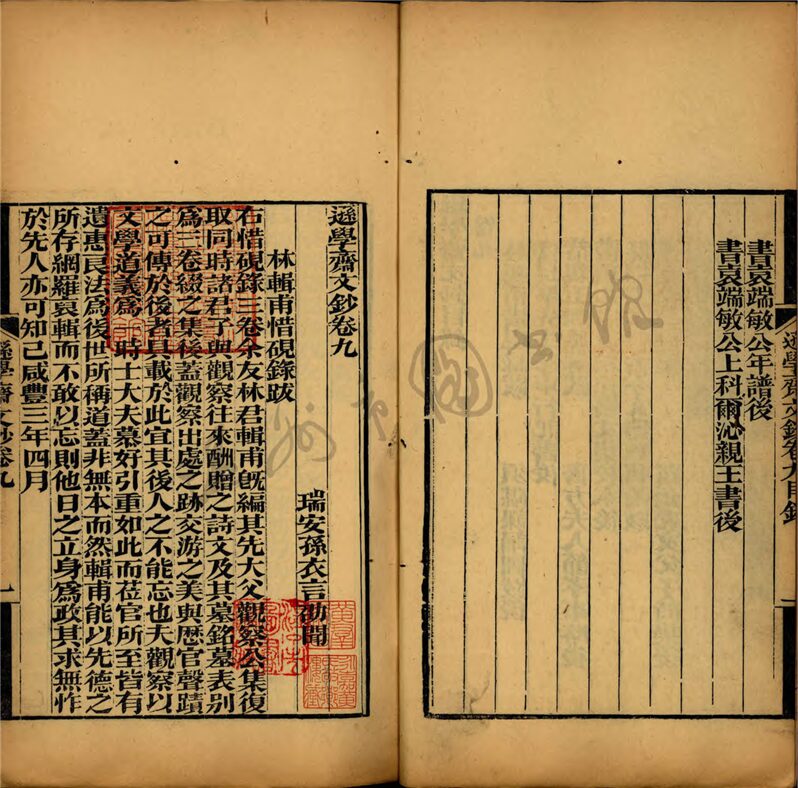 書袁端敏公年譜後
書袁端敏公上科爾沁親王書後
遜學齋文鈔卷九目錄
遜學齋文鈔卷九
瑞安孫衣言劭聞
林輯甫惜硯錄跋
右惜硯錄三卷余友林君輯甫旣編其先大父觀察公集復
取同時諸君子與觀察往來酬贈之詩文及其墓銘墓表别
爲三卷綴之集後蓋觀察出處之跡交游之美與歷官聲蹟
之可傳於後者具載於此宜其後人之不能忘也夫觀察以
文學道義爲一時士大夫慕好引重如此而莅官所至皆有
遺惠良法爲後世所稱道蓋非無本而然輯甫能以先德之
所存網羅裒輯而不敢以忘則他日之立身爲政其求無怍
於先人亦可知已咸豐三年四月
遜學齋文鈔卷九
一